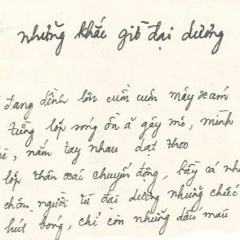 những khắc giờ đại dương
đang dềnh lên cuồn cuộn mây xám
từng lớp sóng ồn ã gây mê, mình
, nắm tay nhau dạt theo
lớp thân xác chuyển động, bầy và nh
chân người từ đại dương những chiếc
hút bóng, chỉ còn những dấu màu